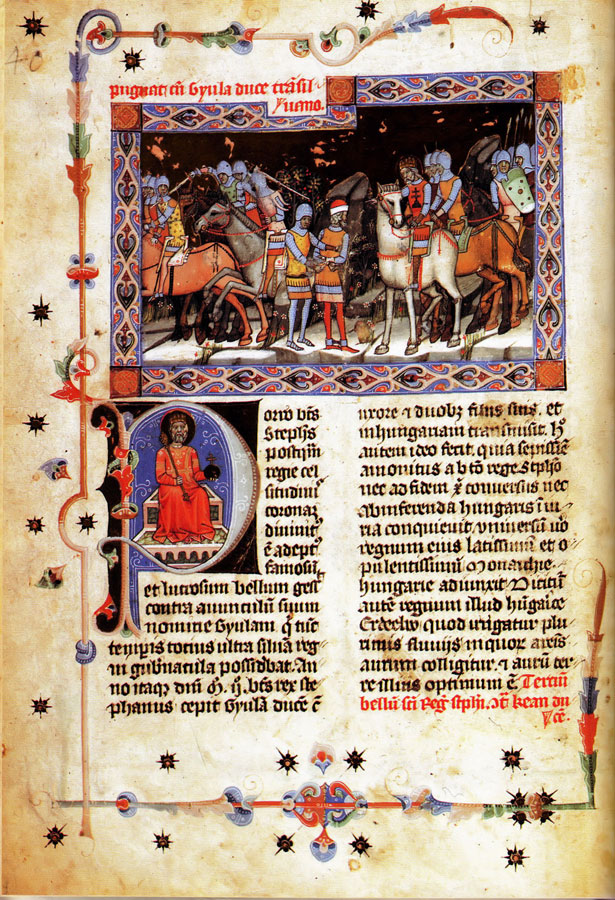 pugnat cū Gyula duce trāsil
uano.
Porro bt̄s
Stephs
postqm̄
regie cel
situdinis
coronaꝫ
diuinitꝰ
ē adeptꝰ
famosuꝫ
et lucrosum bellum gesš
contra auunculū suum
nomine Gyulam q̄ tūc
tempis totius ultra siluā reg
ni gubnacula possidebat. An
no itaqꝫ dnī M. ij. bt̄s rex ste
phanus cepit Gyulā ducē c̄
uxore ⁊ duobꝫ filiis suis. et
in hungariam transmisit. Hͦ
autem ideo fecit. quia sepissime
amonitus a bt̄o rege Stpħo
nec ad fidem xp̄i conuersus nec
ab inferenda hungaris iniu
ria conquieuit, uniuersū uo
regnum eius latissimū et o
pulentissimū Monarchie
hungarie adiunxit. Dicitur
autē regnum illud hūgaice
Erdeelw quod irrigatur plu
rimis fluuijs in quor areis
aurum colligitur. ⁊ aurū ter
re illius optimum ē. Terciū
bellū sci Reg stphi. ꝯt Kean du
cē.